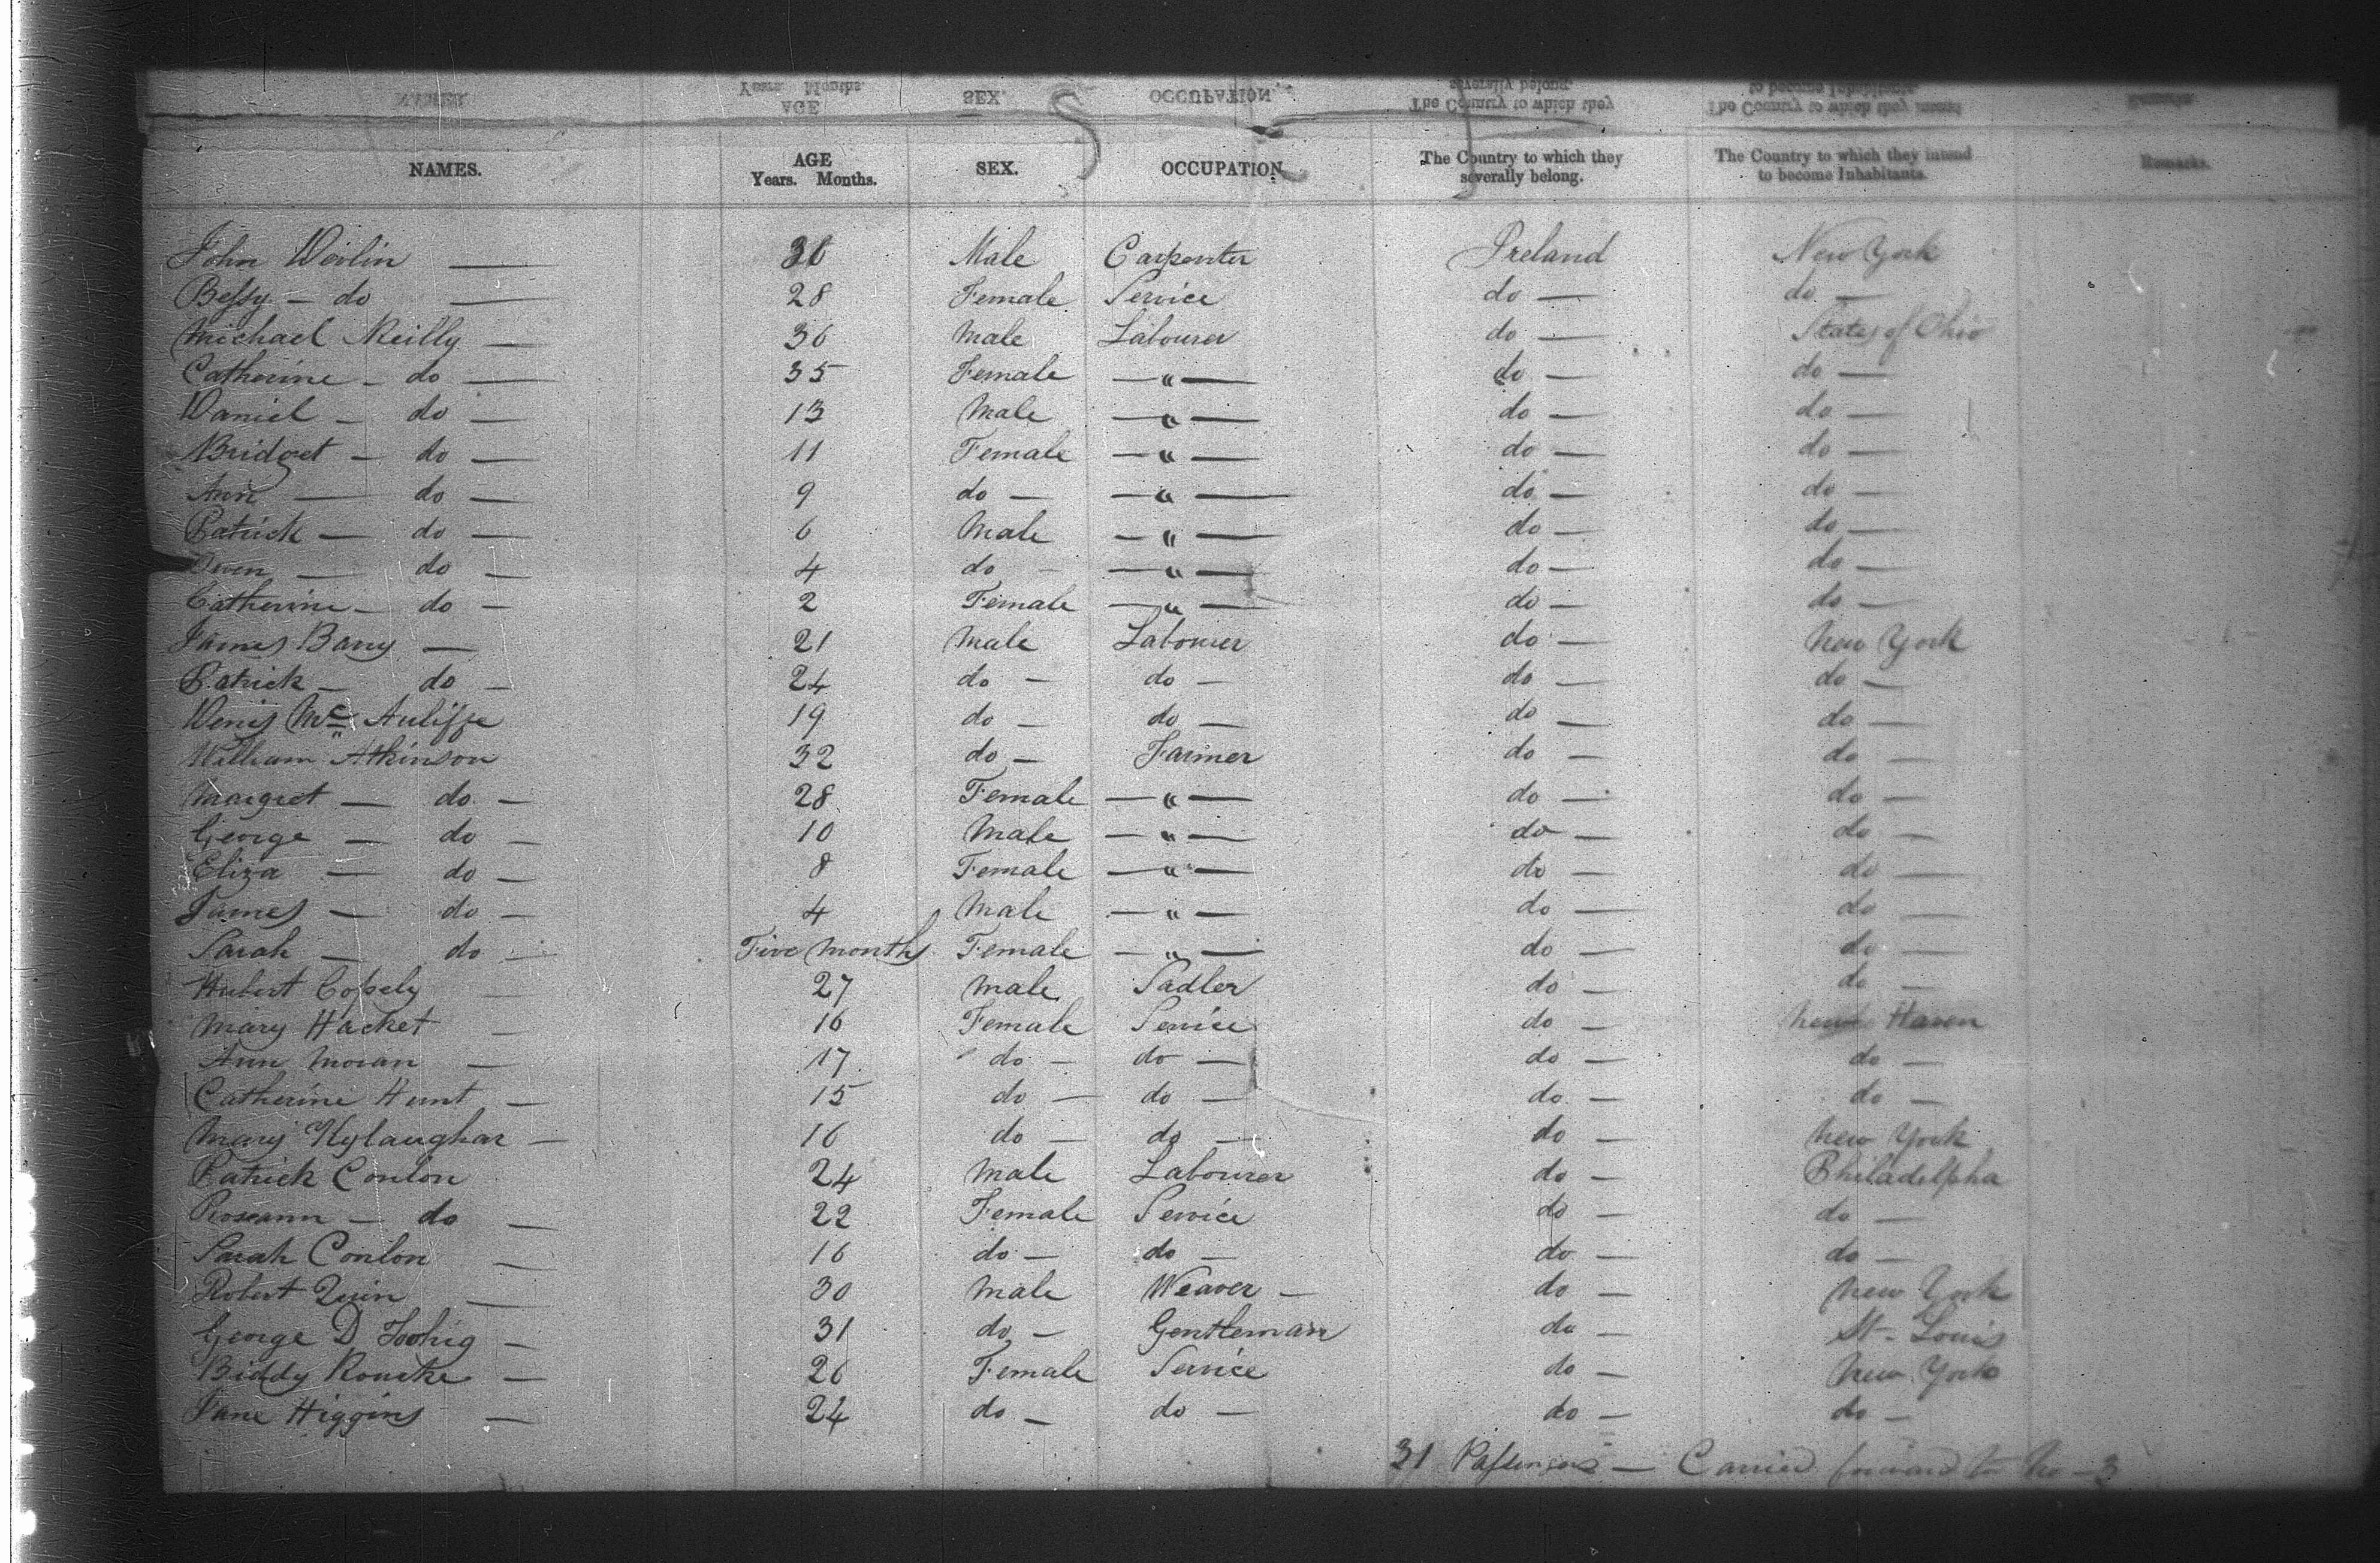 NAMES. AGE Years. Months. SEX. OCCUPATION. The Country to which they severally belong. The Country to which they intend to become Inhabitants. Remarks.
John Devlin — 36 Male Carpenter Ireland New York
Bessy — do — 28 Female Service do — do —
Michael Reilly — 36 Male Labourer do — States of Ohio
Catherine — do — 35 Female — " — do — do —
Daniel — do — 13 Male — " — do — do —
Bridget — do — 11 Female — " — do — do —
Ann — do — 9 do — — " — do — do —
Patrick — do — 6 Male — " — do — do —
Owen — do — 4 do — — " — do — do —
Catherine — do — 2 Female — " — do — do —
James Barry — 21 Male Labourer do — New York
Patrick — do — 24 do — do — do — do —
Denis Mc Auliffe 19 do — do — do — do —
William Atkinson 32 do — Farmer do — do —
Margret — do — 28 Female — " — do — do —
George — do — 10 Male — " — do — do —
Eliza — do — 8 Female — " — do — do —
James — do — 4 Male — " — do — do —
Sarah — do — Five Months Female — " — do — do —
Hubert — 27 Male Sadler do — do —
Mary Hacket — 16 Female Service do — New Haven
Ann Moran — 17 do — do — do — do —
Catherine Hunt — 15 do — do — do — do —
Mary — 16 do — do — do — New York
Patrick Conlon 24 Male Labourer do — Philadelpha
Roseann — do — 22 Female Service do — do —
Sarah Conlon — 16 do — do — do — do —
Robert Quin — 30 Male Weaver — do — New York
George D Toohig — 31 do — Gentleman do — St. Louis
Biddy Rourke — 26 Female Service do — New York
Jane Higgins — 24 do — do — do — do —
31 Passengers — Carried forward to No — 3